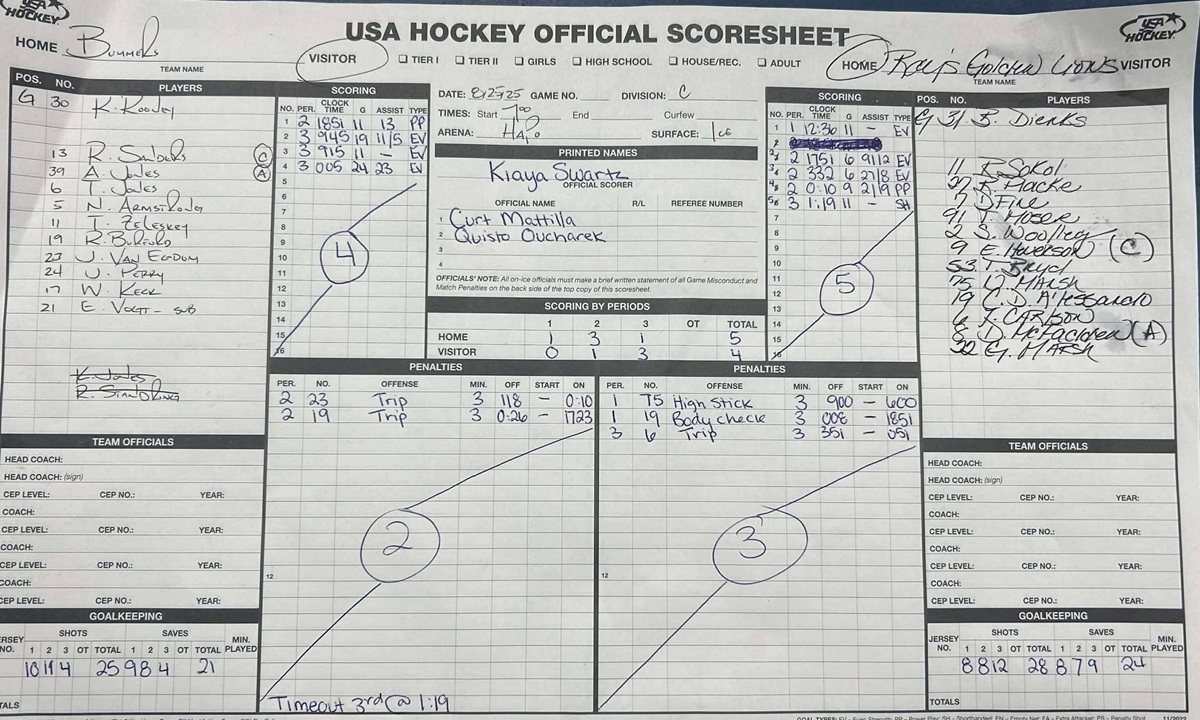 USA HOCKEY OFFICIAL SCORESHEET
USA HOCKEY.
USA HOCKEY.
HOME Bummers
TEAM NAME
VISITOR ☐ TIER I ☐ TIER II ☐ GIRLS ☐ HIGH SCHOOL ☐ HOUSE/REC. ☐ ADULT HOME Ray's Golden Lions VISITOR
TEAM NAME
POS. NO. PLAYERS
G 30 K. Rooney
13 R. Sanders C
39 A. Jones A
6 T. Jones
5 N. Armstrong
11 T. Zeleskey
19 R. Buford
23 J. Van Egdom
24 J. Perry
17 W. Keck
21 E. Vogt - SUB
K. Jones
SCORING
NO. PER. CLOCK TIME G ASSIST TYPE
1 2 1851 11 13 PP
2 3 945 19 11/5 EV
3 3 915 11 - EV
4 3 005 24 23 EV
5
6
7
8
9
10
11
12
13
14
15
16
4
DATE: 8/25/25 GAME NO. DIVISION: C
TIMES: Start 7:00 End Curfew
ARENA: HaPo SURFACE: Ice
PRINTED NAMES
Kiaya Swartz
OFFICIAL SCORER
OFFICIAL NAME R/L REFEREE NUMBER
1 Curt Mattilla
2 Quisto Oucharek
3
4
OFFICIALS' NOTE: All on-ice officials must make a brief written statement of all Game Misconduct and
Match Penalties on the back side of the top copy of this scoresheet.
SCORING BY PERIODS
1 2 3 OT TOTAL
HOME 1 3 1 5
VISITOR 0 1 3 4
SCORING
NO. PER. CLOCK TIME G ASSIST TYPE
1 1 12:36 11 - EV
2
3 2 1751 6 91/2 EV
4 2 332 6 27/8 EV
5 2 0:10 9 2/19 PP
6 3 1:19 11 - SH
7
8
9
10
11
12
13
14
15
16
5
POS. NO. PLAYERS
G 31 B. Dierks
11 R. Sokol
27 Macke
7 D. Fine
91 T. Moser
2 S. Woolley
9 E. Haverson (C)
53 T. Brycl
75 D. Marsh
19 C. D'Alessandro
6 J. Carlson
8 D. McFadden (A)
22 G. Marsh
PENALTIES
PER. NO. OFFENSE MIN. OFF START ON
2 23 Trip 3 118 - 0:10
2 19 Trip 3 0:26 - 1723
12
2
Timeout 3rd @ 1:19
PENALTIES
PER. NO. OFFENSE MIN. OFF START ON
1 75 High Stick 3 900 - 600
1 19 Body check 3 008 - 1851
3 6 Trip 3 351 - 051
12
3
TEAM OFFICIALS
HEAD COACH:
HEAD COACH: (sign)
CEP LEVEL: CEP NO.: YEAR:
COACH:
CEP LEVEL: CEP NO.: YEAR:
COACH:
CEP LEVEL: CEP NO.: YEAR:
COACH:
CEP LEVEL: CEP NO.: YEAR:
GOALKEEPING
JERSEY NO. SHOTS SAVES MIN. PLAYED
1 2 3 OT TOTAL 1 2 3 OT TOTAL
10 11 4 25 9 8 4 21
TOTALS
TEAM OFFICIALS
HEAD COACH:
HEAD COACH: (sign)
CEP LEVEL: CEP NO.: YEAR:
COACH:
CEP LEVEL: CEP NO.: YEAR:
COACH:
CEP LEVEL: CEP NO.: YEAR:
COACH:
CEP LEVEL: CEP NO.: YEAR:
GOALKEEPING
JERSEY NO. SHOTS SAVES MIN. PLAYED
1 2 3 OT TOTAL 1 2 3 OT TOTAL
8 8 12 28 8 7 9 24
TOTALS